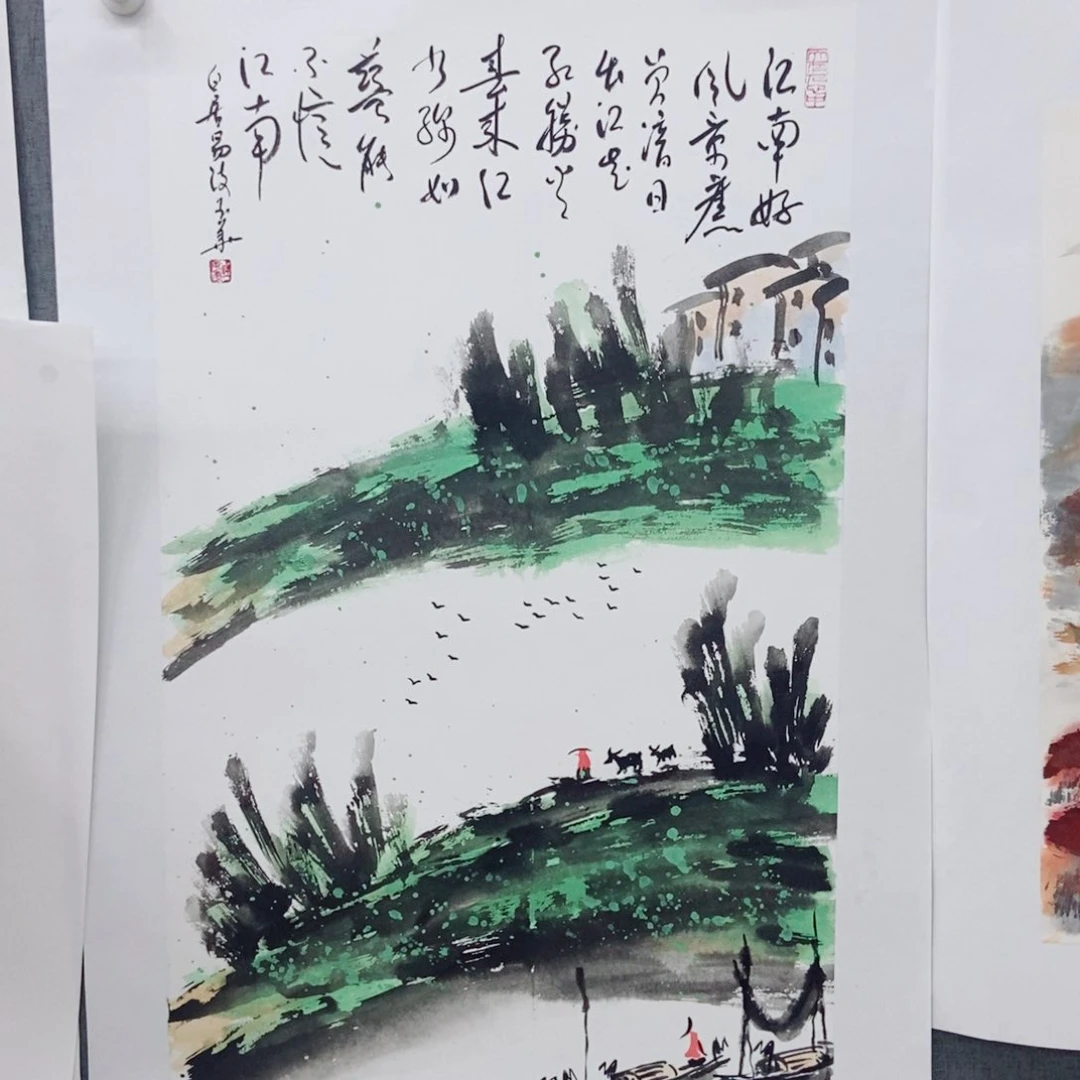 江南好
风景舊
曾谙日
出江花
红勝火
春来江
水绿如
藍能
不憶
江南
白居易诗